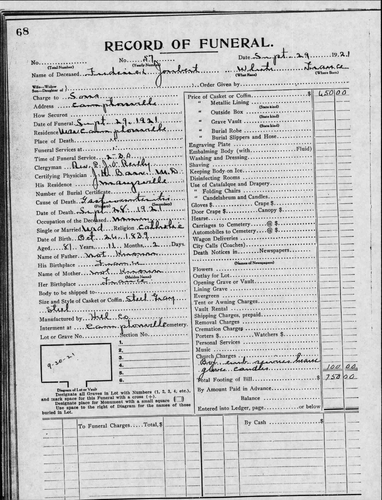 68
RECORD OF FUNERAL.
No. No. 87 Date Sept. 29 1921
(Total Number) (Yearly Number)
Name of Deceased Frederick Joubert White France
(What Race) (Where Born)
Wife—Widow
Son—Daughter of
Charge to Sons
Address Camptonville
How Secured
Date of Funeral Sept 29, 1921
Residence Camptonville
Place of Death
Funeral Services at
Time of Funeral Service 2:30
Clergyman Rev.
Certifying Physician M.D.
His Residence Marysville
Number of Burial Certificate
Cause of Death
Date of Death Sept 28, 1921
Occupation of Deceased
Single or Married Religion Catholic
Date of Birth Oct.
Aged 81 Years, 11 Months, 2 Days
Name of Father Not Known
His Birthplace France
Name of Mother Not Known
(Maiden Name)
Her Birthplace France
Body to be shipped to
Size and Style of Casket or Coffin Steel Gray
Steel
Manufactured by Co
Interment at Camptonville Cemetery.
Lot or Grave No. Section No.
9-30-21
1.
2.
3.
4.
5.
6.
Diagram of Lot or Vault
Designate all Graves in Lot with Numbers (1, 2, 3, 4, etc.)
and mark space for this Funeral with a cross (+).
Designate place for Monument with a small square
Use space to the right of Diagram for the names of those
buried in Lot.
Order Given by
Price of Casket or Coffin $ 650 00
" Metallic Lining
(State kind)
" Outside Box
(State kind)
" Grave Vault
(State kind)
" Burial Robe
" Burial Slippers and Hose
Engraving Plate
Embalming Body (with Fluid)
Washing and Dressing
Shaving
Keeping Body on Ice
Disinfecting Rooms
Use of Catafalque and Drapery
" Folding Chairs
" Candelabrum and Candles
Gloves $ Crape $
Door Crape $ Hearse $
Carriages to Cemetery @ $
Automobiles to Cemetery @ $
Wagon Deliveries
City Calls (Coaches)
Death Notices in Newspapers
(Names of Newspapers)
Flowers
Outlay for Lot
Opening Grave or Vault
Lining Grave
Evergreen
Tent or Awning Charges
Vault Rental
Shipping Charges, prepaid
Removal Charges
Cremation Charges
Porters $ Watchers $
Personal Services
Music
Church Charges
Box emb services hearse
gloves candles 100 00
Total Footing of Bill $ 750 00
By Amount Paid in Advance
Balance
Entered into Ledger, page or below.
To Funeral Charges. $ To Funeral Charges. $